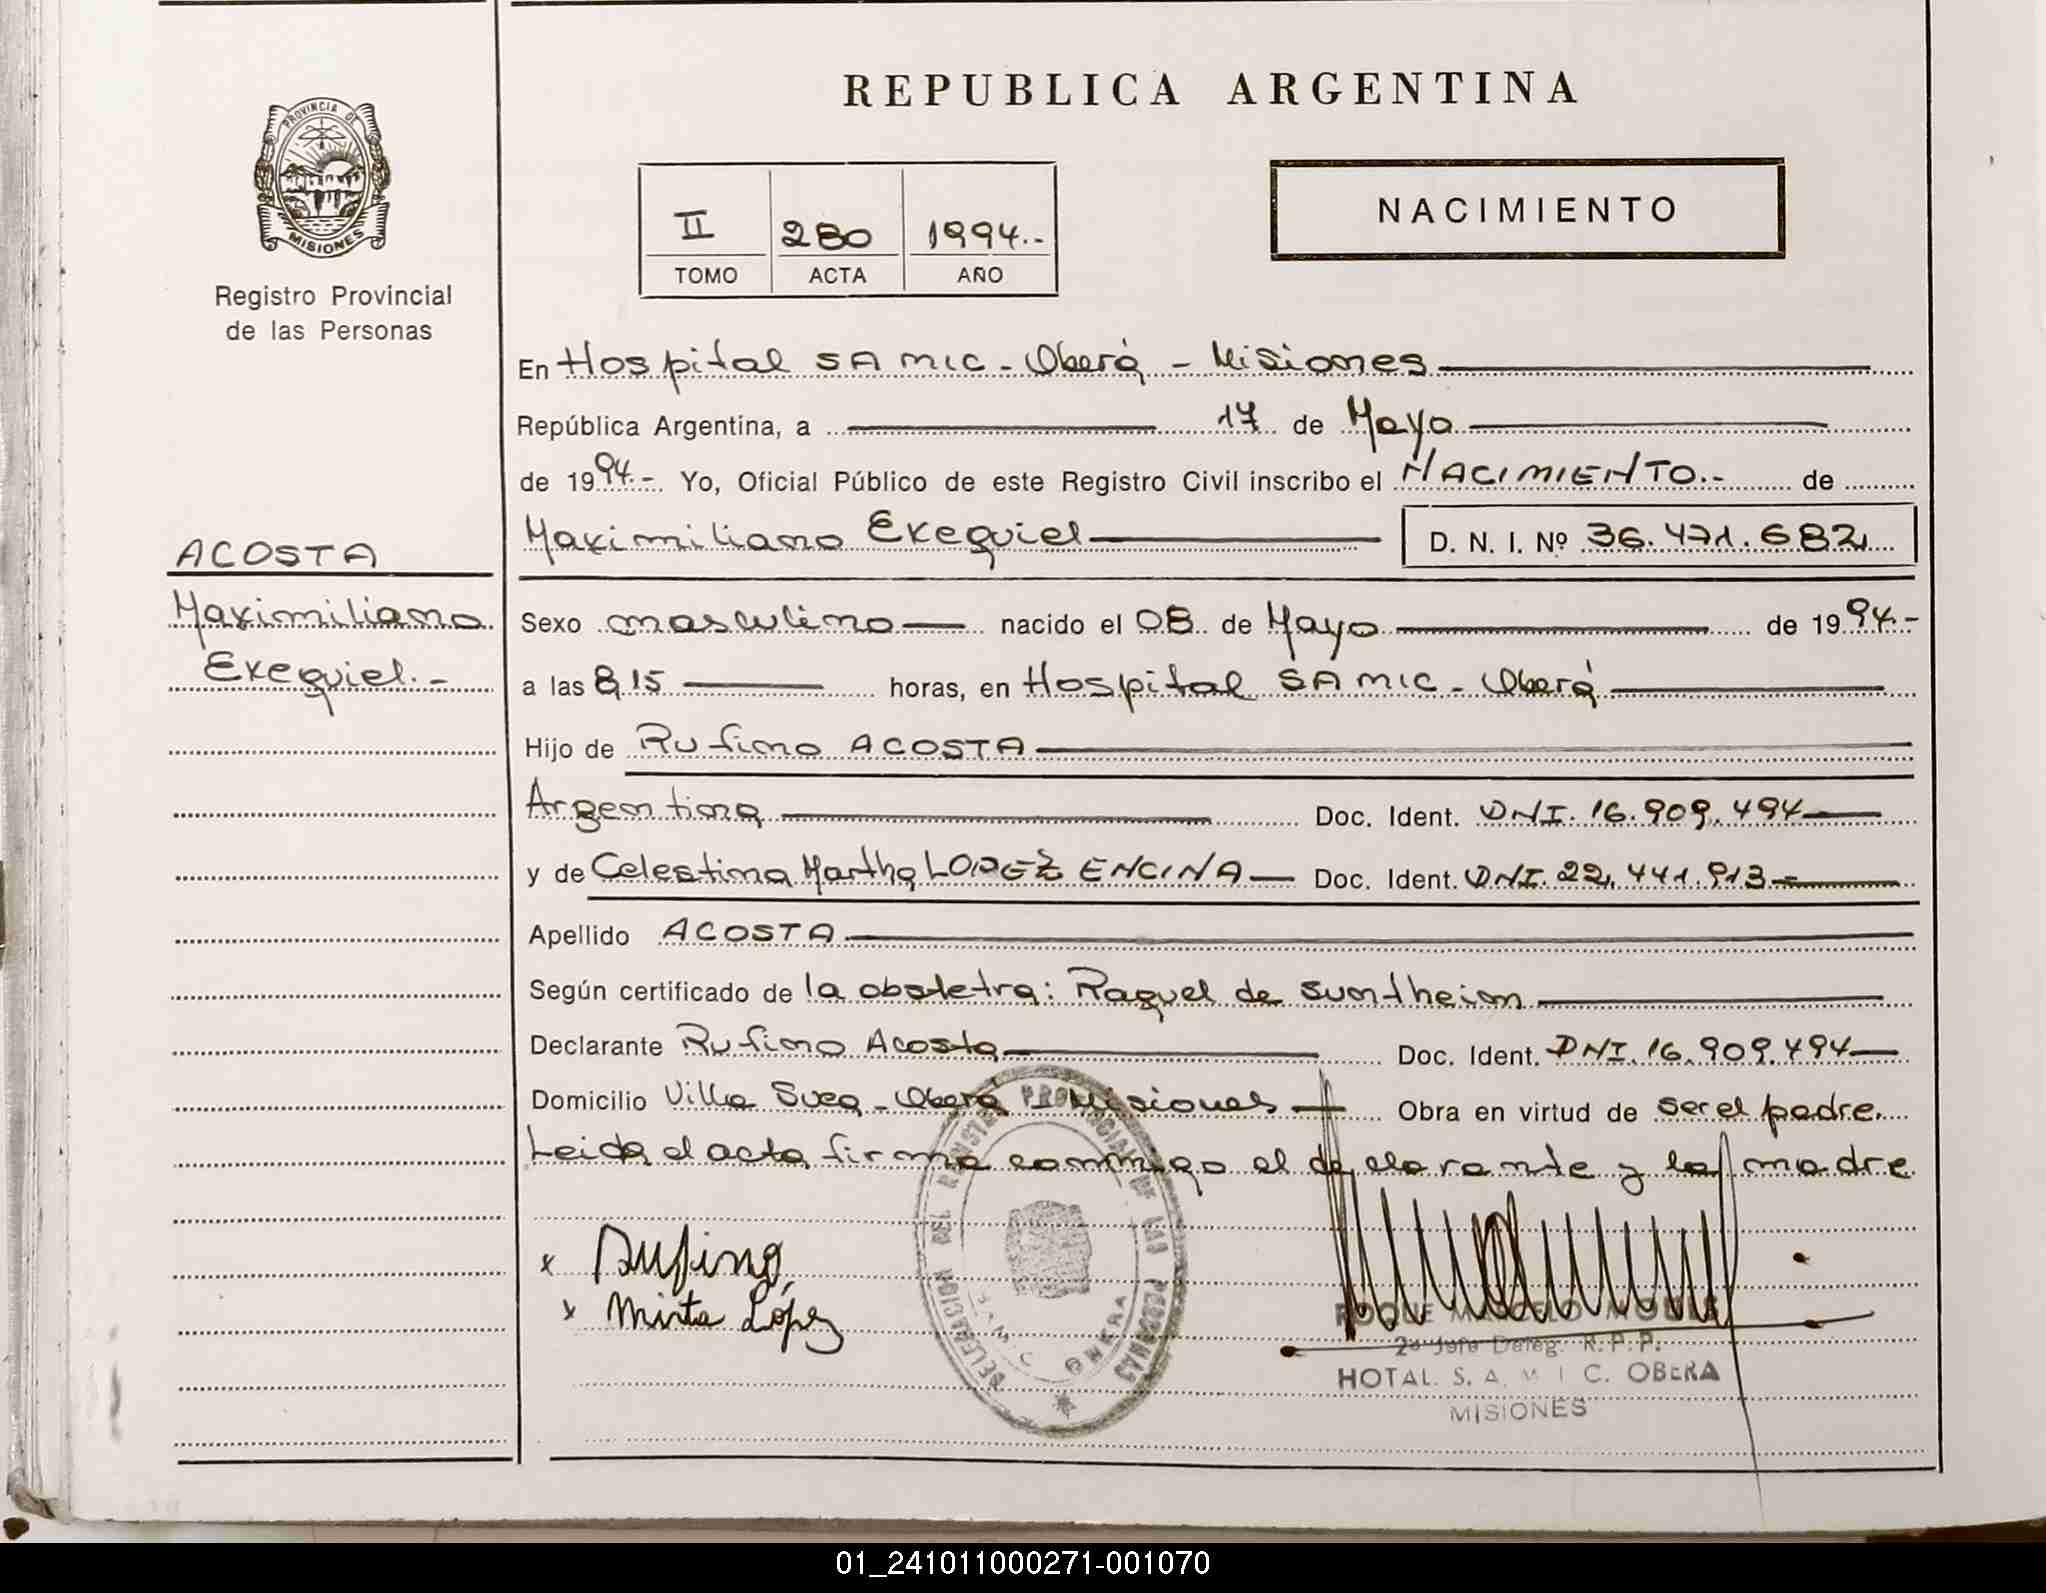 REPUBLICA ARGENTINA
PROVINCIA DE
MISIONES
Registro Provincial
de las Personas
II 280 1994.-
TOMO ACTA AÑO
NACIMIENTO
ACOSTA
Maximiliano
Exequiel.-
En Hospital SAMIC - Oberá - Misiones
República Argentina, a 17 de Mayo
de 1994.- Yo, Oficial Público de este Registro Civil inscribo el NACIMIENTO.- de
Maximiliano Exequiel D. N. I. Nº 36.471.682
Sexo masculino nacido el 08 de Mayo de 1994.-
a las 8,15 horas, en Hospital SAMIC - Oberá
Hijo de Rufino ACOSTA
Argentina Doc. Ident. DNI. 16.909.494
y de Celestina Martha LOPEZ ENCINA Doc. Ident. DNI. 22.441.913
Apellido ACOSTA
Según certificado de la obstetra: Raquel de Suntheim
Declarante Rufino Acosta Doc. Ident. DNI. 16.909.494
Domicilio Villa Svea - Oberá Misiones Obra en virtud de ser el padre.
Leida el acta firma conmigo el declarante y la madre
x Rufino
x Mirta López
DELEGACION DEL REGISTRO PROVINCIAL DE LAS PERSONAS
S.A.M.I.C. OBERA
2º Jefe Deleg. R. P. P.
HOTAL. S. A. M. I C. OBERA
MISIONES
01_241011000271-001070